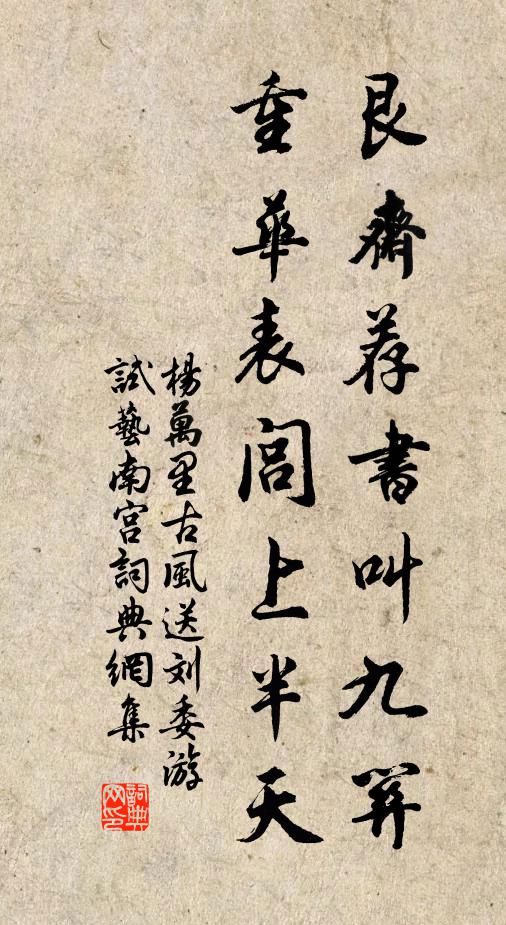 艮齋荐書叫九關
重華表閭上半天
楊萬里古風送刘委游
試藝南宮詞典網集
詞典
网印